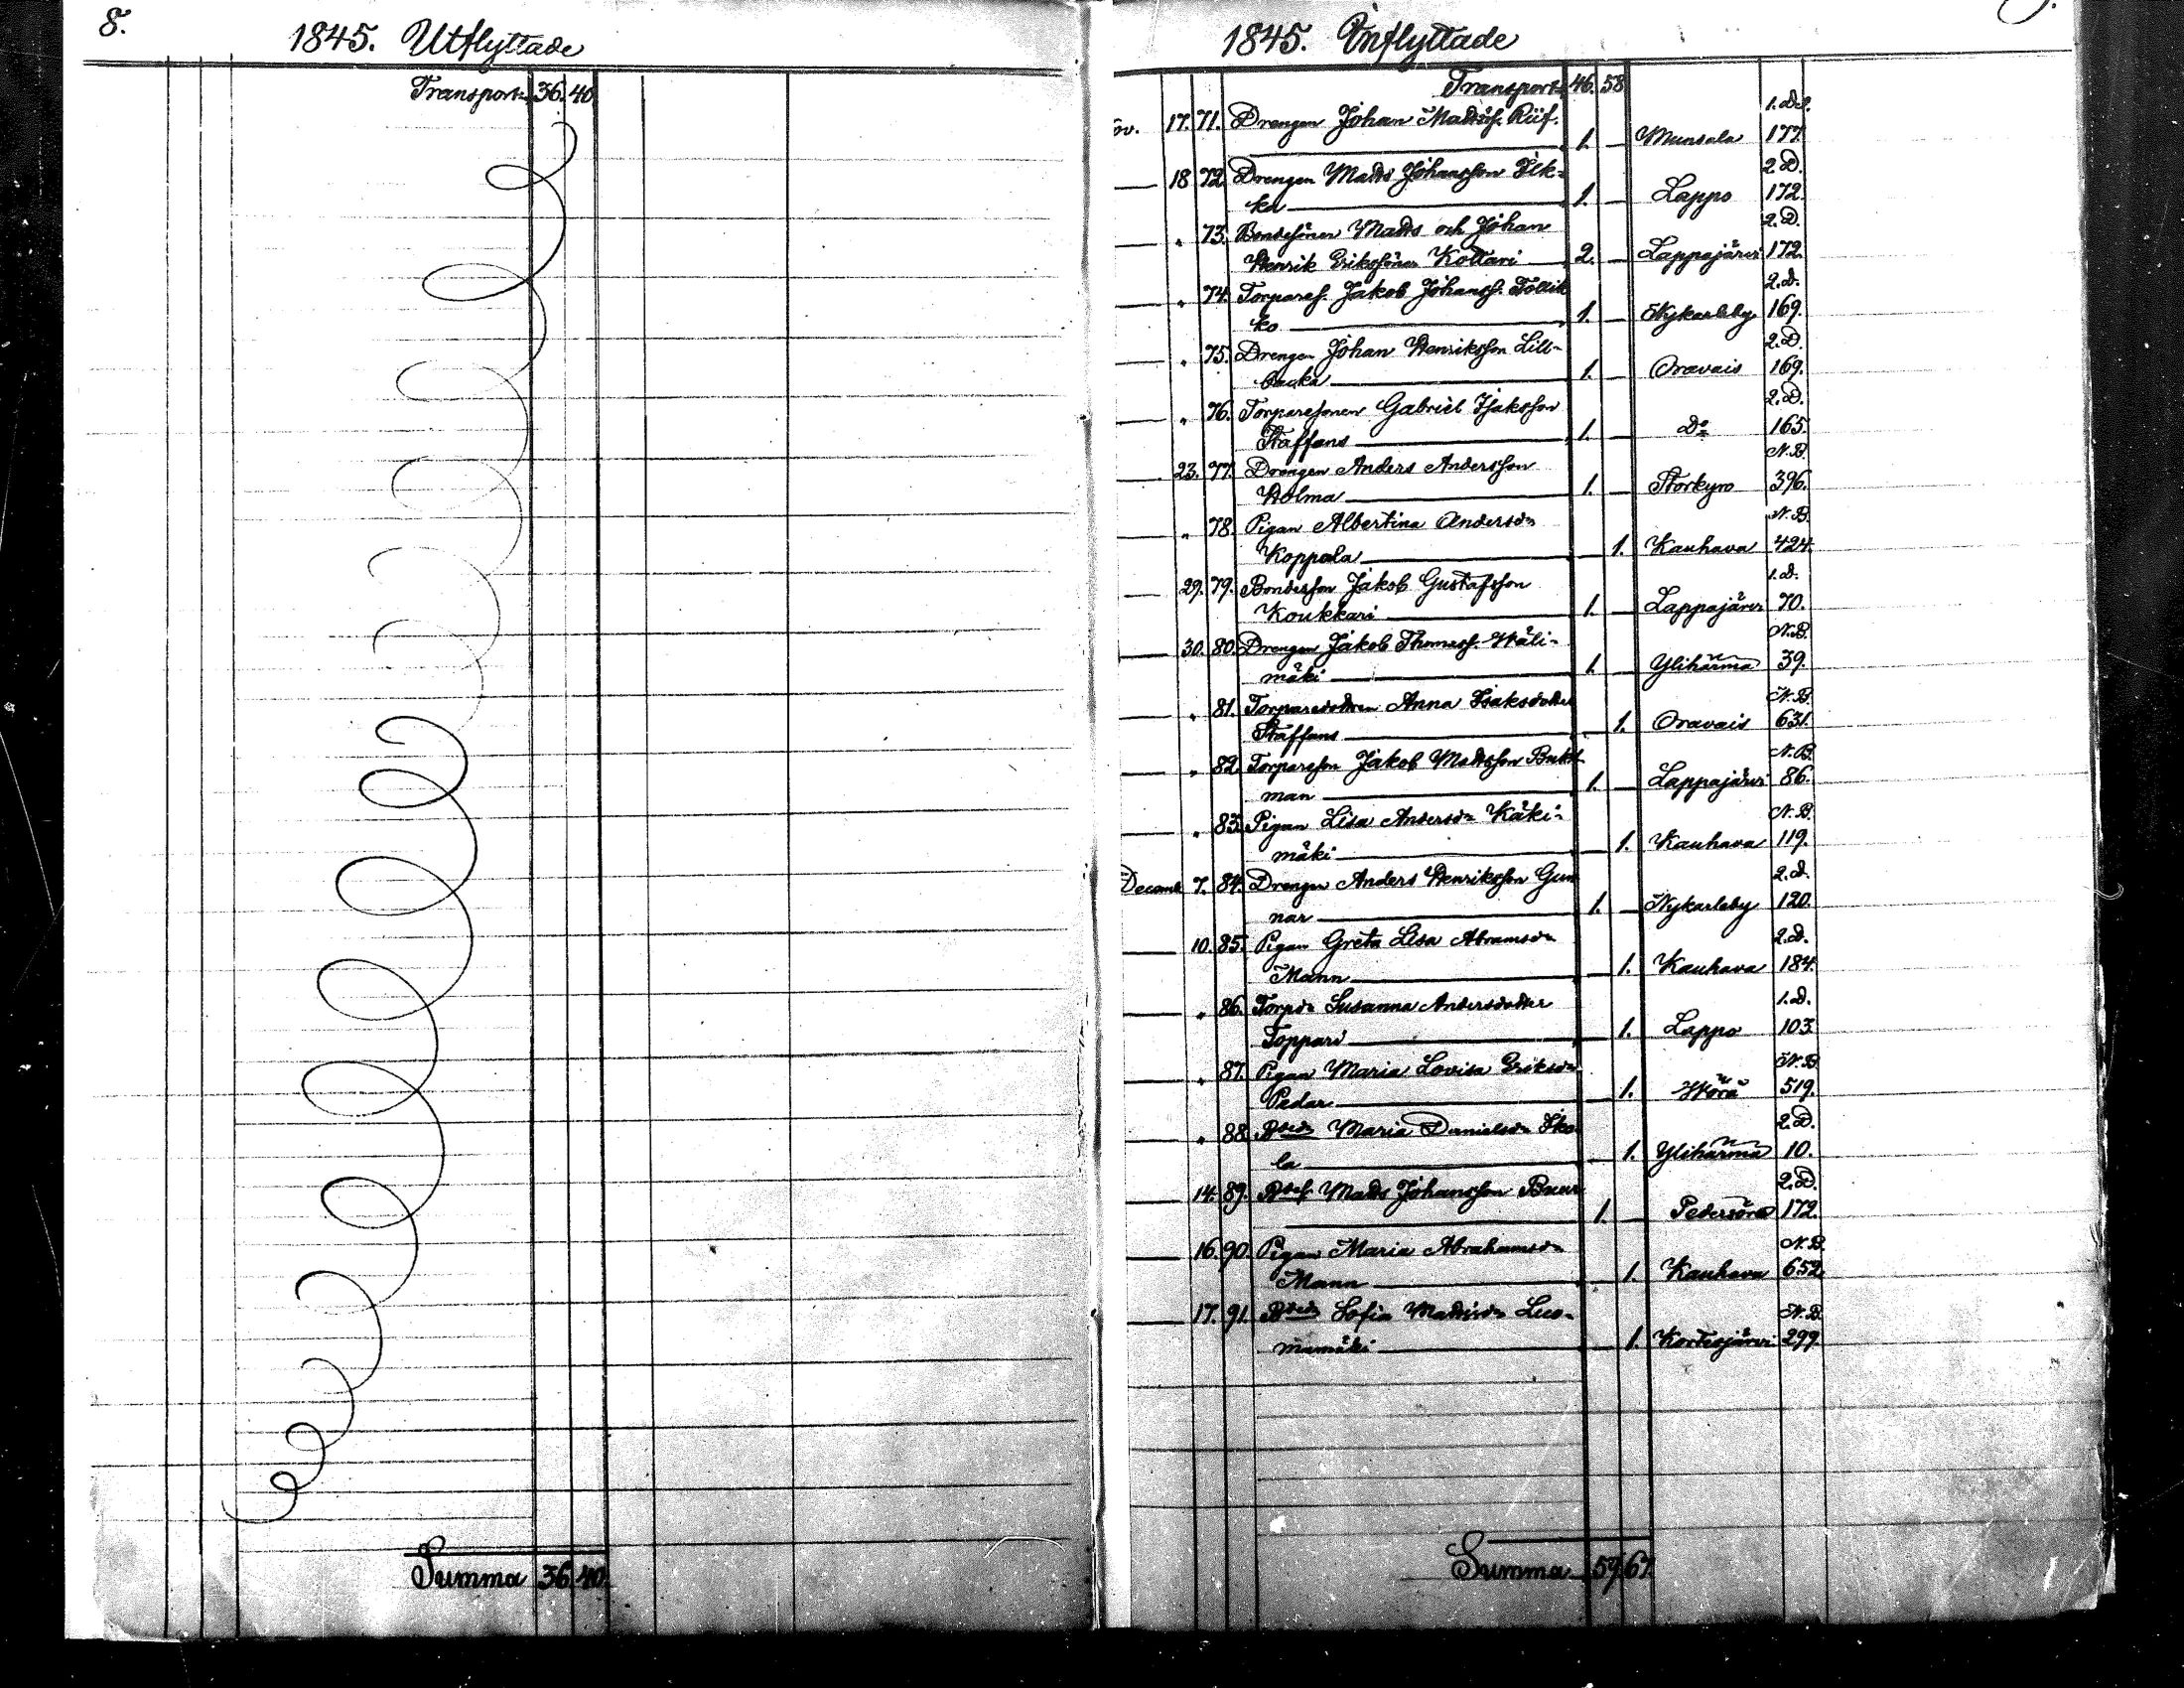 8.
1845. Utflyttade
Transport 36. 40
Summa 36. 40.
1845. Inflyttade
Transport 46. 58
1. D.
ov. 17. 71. Drengen Johan Madtsss. Riif. 1. Munsala 177.
2. D.
18 72. Drengen Matts Johansson Ilk-
ka 1. Lappo 172.
2. D.
" 73. Bondesöner Matts och Johan
Henrik Erikssöner Kottari 2. Lappajärvi 172.
2. D.
" 74. Torpares. Jakob Johanss.
ko 1. Nykarleby 169.
2. D.
" 75. Drengen Johan Henriksson Lill-
backa 1. Oravais 169.
2. D.
" 76. Torparesonen Gabriel Isaksson
Staffans 1. Do 165.
N. B.
23. 77. Drengen Anders Andersson
Holma 1. Storkyro 396.
N. B.
" 78. Pigan Albertina Andersdr
Koppala 1. Kauhava 424.
1. D.
29. 79. Bondesson Jakob Gustafsson
Koukkari 1. Lappajärvi 70.
N. B.
30. 80. Drengen Jakob Thomass. Wäli-
mäki 1. Ylihärmä 39.
N. B.
" 81. Torparedottren Anna Isaksdotter
Staffans 1. Oravais 631.
N. B.
" 82. Torpareson Jakob Mattsson
man 1. Lappajärvi 86.
N. B.
" 83. Pigan Lisa Andersdr Käki-
mäki 1. Kauhava 119.
2. D.
Decemb 7. 84. Drengen Anders Henriksson Gun
nar 1. Nykarleby 120.
2. D.
10. 85. Pigan Greta Lisa Abramsdr
Mann 1. Kauhava 184.
1. D.
" 86. Torpdr Susanna Andersdotter
Toppari 1. Lappo 103.
N. B.
" 87. Pigan Maria Lovisa Eriksdr
Pedar 1. Wörå 519.
2. D.
" 88. Maria Danielsdr Sko
la 1. Ylihärmä 10.
2. D.
14. 89. Matts Johansson 1. Pedersöre 172.
N. B.
16. 90. Pigan Maria Abrahamsdr
Mann 1. Kauhava 652.
N. B.
17. 91. Sofia Mattsdr Luo-
mamäki 1. Kortesjärvi 299.
Summa 57. 67.